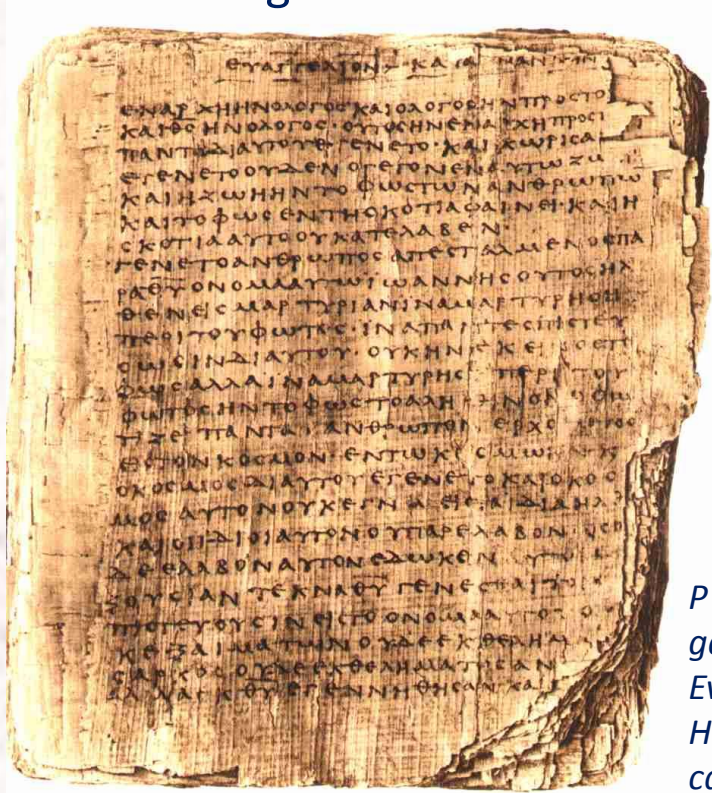 ΕΥΑΓΓΕΛΙΟΝ ΚΑ
ΕΝΑΡΧΗΗΝΟΛΟΓΟΣΚΑΙΟΛΟΓΟΣΗΝΠΡΟΣΤΟ
ΚΑΙΘΣΗΝΟΛΟΓΟΣ·ΟΥΤΟΣΗΝΕΝΑ ΧΗΠΡΟΣ
ΠΑΝΤΑΔΙΑΥΤΟΥΕΓΕΝΕΤΟ·ΚΑΙΧΩΡΙΣΑ
ΕΓΕΝΕΤΟΟΥΔΕΝΟΓΕΓΟΝΕΝΑΥΤΩΖΩ
ΚΑΙΗΖΩΗΗΝΤΟΦΩΣΤΩΝΑΝΘΡΩΠΩ
ΚΑΙΤΟΦΩΣΕΝΤΗΣΚΟΤΙΑΦΑΙΝΕΙ·ΚΑΙΗ
ΣΚΟΤΙΑΑΥΤΟΟΥΚΑΤΕΛΑΒΕΝ·
ΓΕΝΕΤΟΑΝΘΡΩΠΟΣΑΠΕΣΤΑΛΜΕΝΟΣΠΑ
ΡΑΘΥΟΝΟΜΑΑΥΤΩΙΩΑΝΝΗΣΟΥΤΟΣΗΛ
ΘΕΝΕΙΣΜΑΡΤΥΡΙΑΝΙΝΑΜΑΡΤΥΡΗΣΗ
ΠΕΡΙΤΟΥΦΩΤΟΣ·ΙΝΑΠΑ ΤΕΣΠΙΣΤΕΥ
ΣΩΣΙΝΔΙΑΥΤΟΥ·ΟΥΚΗΝΕΚΕΙ ΟΣΤ
ΦΩΣΑΛΛΑΙΝΑΜΑΡΤΥΡΗΣ ΠΕΡΙΤΟΥ
ΦΩΤΟΣΗΝΤΟΦΩΣΤΟΑΛΗ ΙΝΟΝ ΟΦΩ
ΤΙΖΕΙΠΑΝΤΑ ΑΝΘΡΩΠΟΝ ΕΡΧΟ
ΕΙΣΤΟΝΚΟΣΜΟΝ·ΕΝΤΩΚΟΣΜΩΗΝΚ
ΟΚΟΣΜΟΣΔΙΑΥΤΟΥΕΓΕΝΕΤΟΚΑΙΟΚΟΣ
ΜΟΣΑΥΤΟΝΟΥΚΕΓΝΩ ΕΙΣΤΑΙΔΙΑΗΛ
ΚΑΙΟΙΙΔΙΟΙΑΥΤΟΝΟΥΠΑΡΕΛΑΒΟΝ·ΟΣΟ
ΔΕΕΛΑΒΟΝΑΥΤΟΝΕΔΩΚΕΝ
ΞΟΥΣΙΑΝΤΕΚΝΑΘΥΓΕΝΕΣΘΑΙΤΟΙ
ΠΙΣΤΕΥΟΥΣΙΝΕΙΣΤΟΟΝΟΜΑΑΥΤΟΥ ΟΥ
ΚΕΞΑΙΜΑΤΩΝΟΥΔΕΕΚΘΕΛΗΜΑ
ΣΑΡΚΟΣΟΥΔΕΕΚΘΕΛΗΜΑΤΟΣΑΝ
ΑΛΛΑΕΚΘΥΕΓΕΝΝΗΘΗΣΑΝ ΚΑΙ
P
H